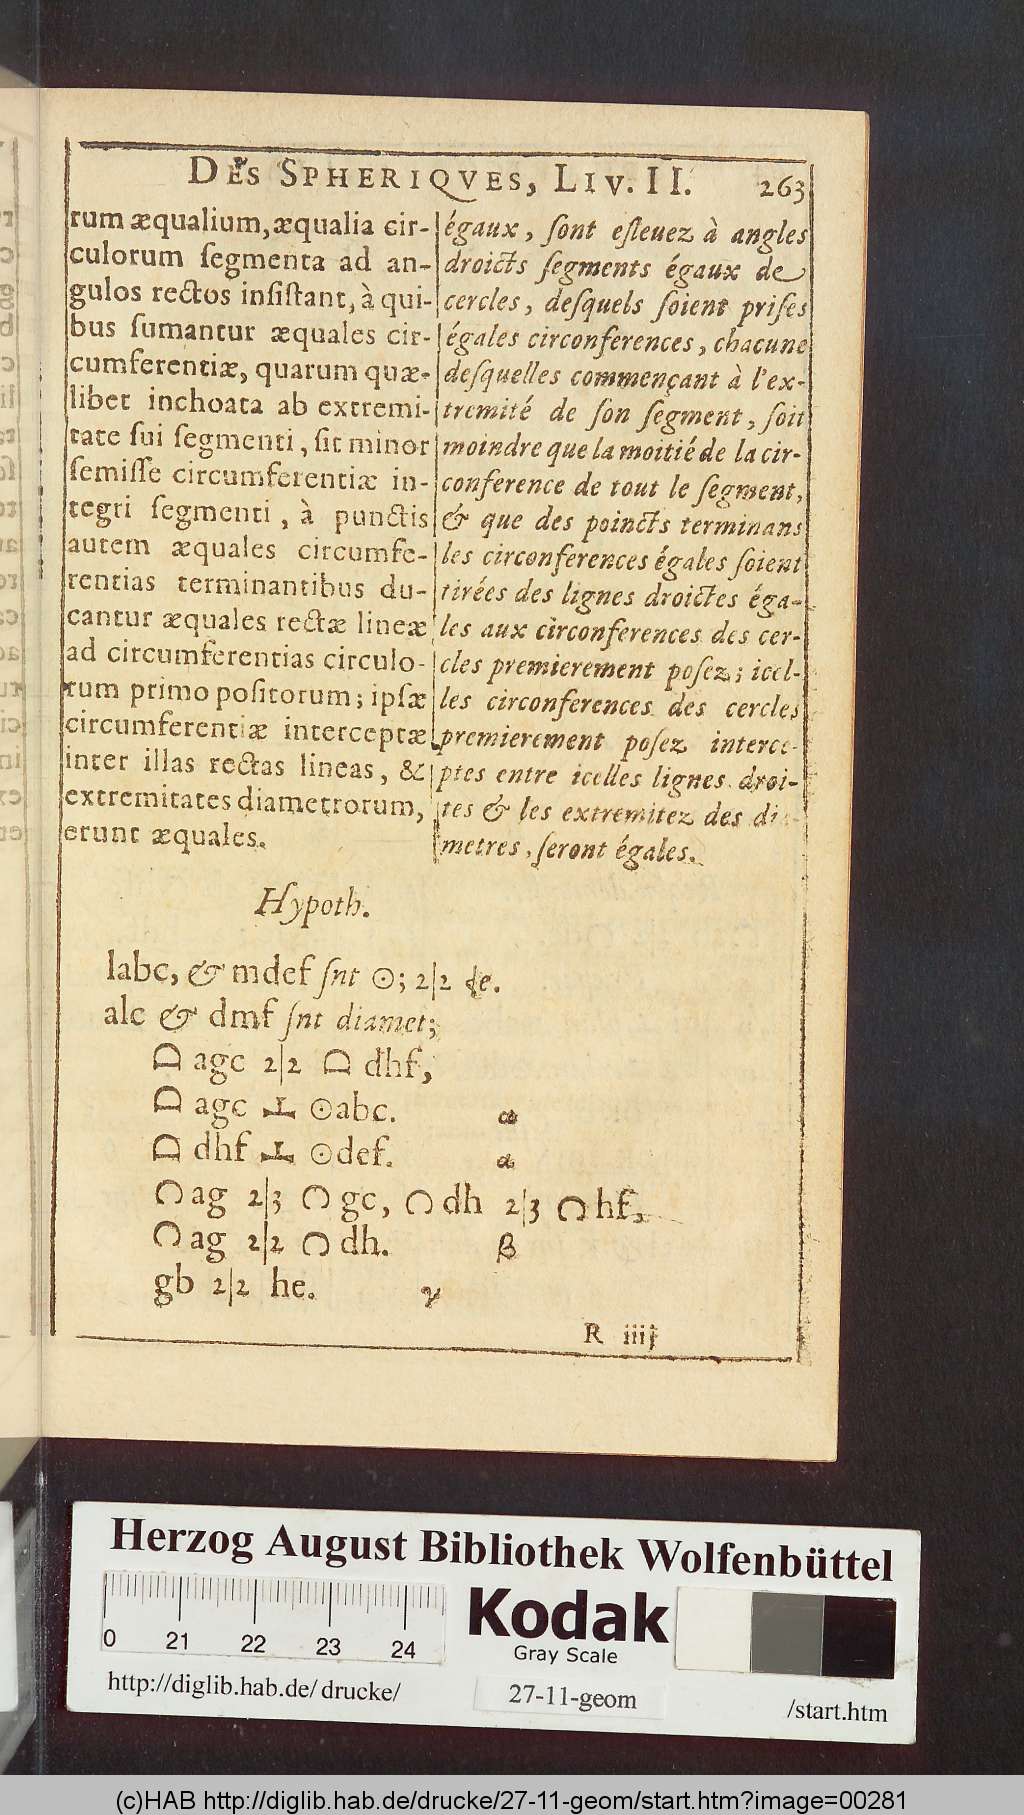 DES SPHERIQVES, LIV. II. 263
rum æqualium, æqualia cir-
culorum ſegmenta ad an-
gulos rectos inſiſtant, à qui-
bus ſumantur æquales cir-
cumferentiæ, quarum quæ-
libet inchoata ab extremi-
tate ſui ſegmenti, ſit minor
ſemiſſe circumferentiæ in-
tegri ſegmenti, à punctis
autem æquales circumfe-
rentias terminantibus du-
cantur æquales rectæ lineæ
ad circumferentias circulo-
rum primo poſitorum; ipſæ
circumferentiæ interceptæ
inter illas rectas lineas, &
extremitates diametrorum,
erunt æquales.
égaux, ſont eſleuez à angles
droicts ſegments égaux de
cercles, deſquels ſoient priſes
égales circonferences, chacune
deſquelles commençant à l'ex-
tremité de ſon ſegment, ſoit
moindre que la moitié de la cir-
conference de tout le ſegment,
& que des poincts terminans
les circonferences égales ſoient
tirées des lignes droictes éga-
les aux circonferences des cer-
cles premierement poſez; icel-
les circonferences des cercles
premierement poſez interce-
ptes entre icelles lignes droi-
tes & les extremitez des di-
metres, ſeront égales.
Hypoth.
labc, & mdef ſnt ⊙; 2|2 de.
alc & dmf ſnt diamet;
⌓ agc 2|2 ⌓ dhf,
⌓ agc ⊥ ⊙abc. α
⌓ dhf ⊥ ⊙def. α
∩ ag 2|3 ∩ gc, ∩ dh 2|3 ∩ hf,
∩ ag 2|2 ∩ dh. β
gb 2|2 he. γ
R iiij
Herzog August Bibliothek Wolfenbüttel
0 21 22 23 24
Kodak
Gray Scale
http://diglib.hab.de/drucke/ 27-11-geom /start.htm
(c)HAB http://diglib.hab.de/drucke/27-11-geom/start.htm?image=00281